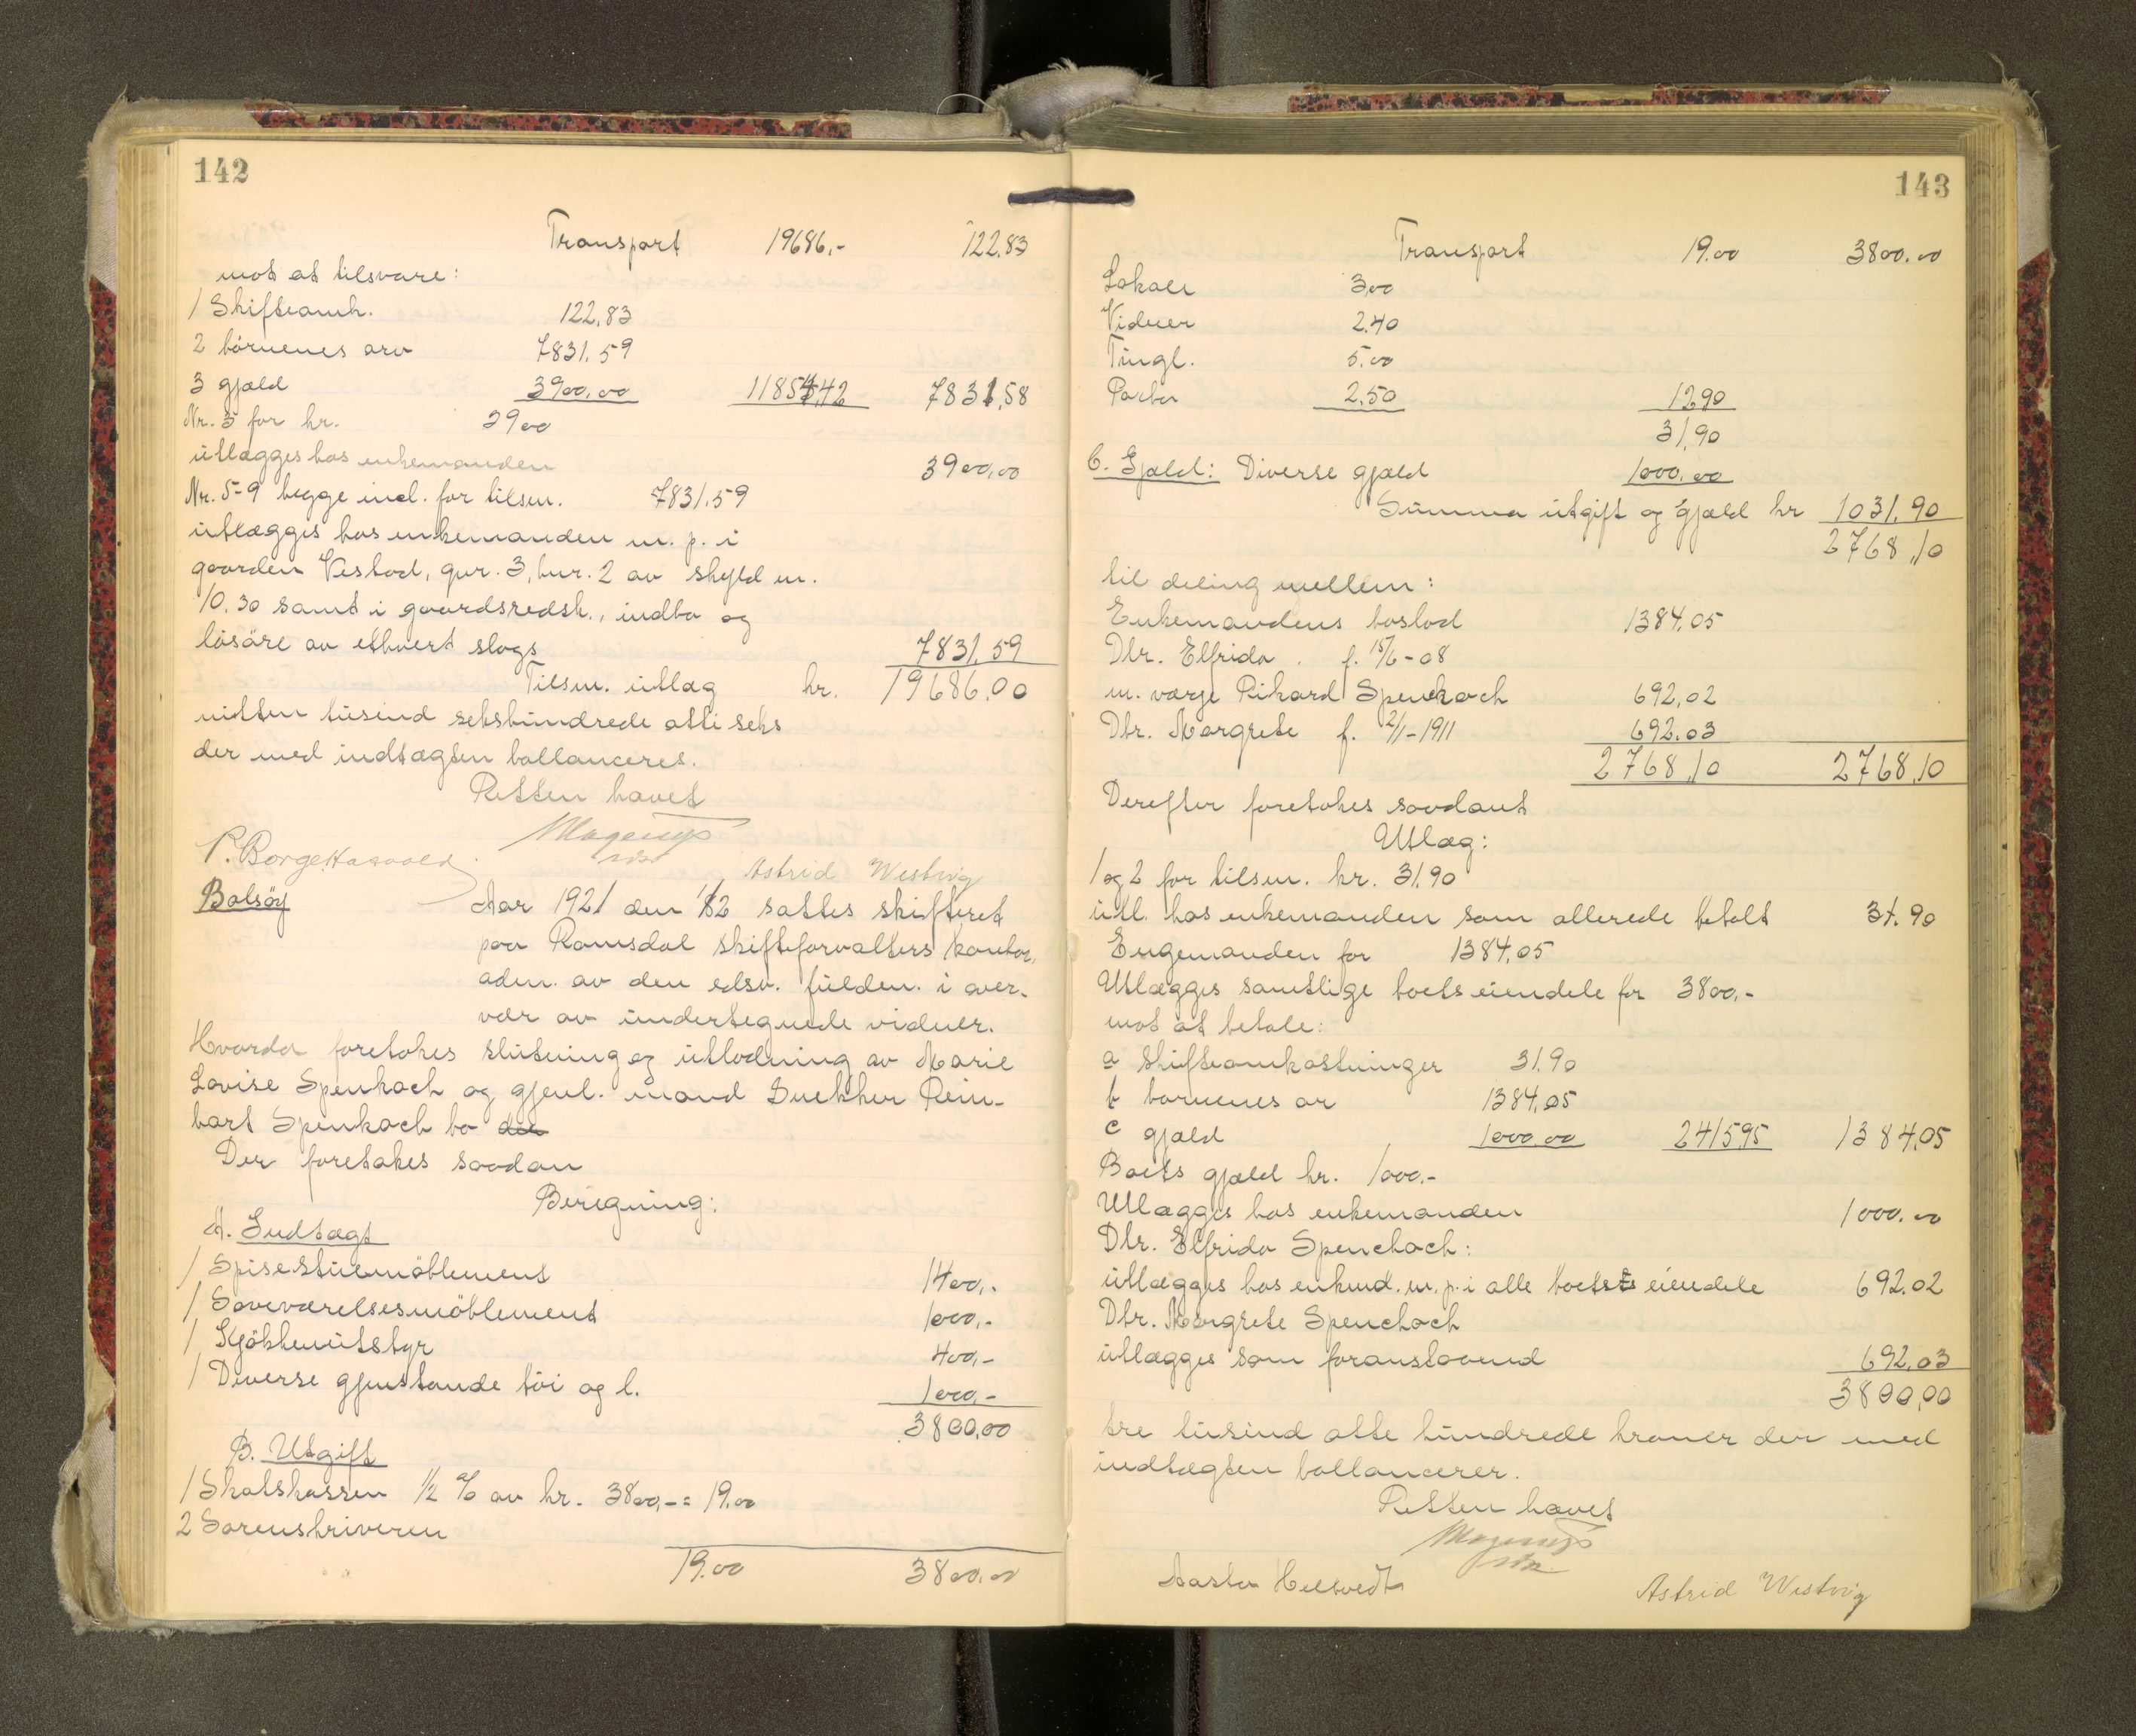 142
Transport 19686.- 122.83
mot at tilsvare:
1 Skifteomk. 122.83
2 börnenes arv 7831.59
3 gjæld 3900.00 11854.42 7831.58
Nr. 3 for kr. 3900
utlægges hos enkemanden 3900.00
Nr. 5-9 begge incl. for tilsm. 7831.59
utlægges hos enkemanden m. p. i
gaarden Vestad, gnr. 3, bnr. 2 av skyld m.
10.30 samt i gaardsredsk., indbo og
lösöre av ethvert slags 7831.59
Tilsm. utlæg kr. 19686.00
nitten tusind sekshundrede otti seks
der med indtægten ballanceres.
Retten hævet
Astrid Westvig
Bolsöy
Aar 1921 den 1/2 sattes skifteret
paa Romsdal skifteforvalters kontor,
adm. av den edsv. fuldm. i over-
vær av undertegnede vidner.
Hvorda foretokes slutning og utlodning av Marie
Lovise Spenkoch og gjenl. mand Buekher Rein-
hart Spenkoch bo der
Der foretokes saadan
Beregning:
A. Indtægt
1 Spisestuemöblement 1400,-
1 Soveværelsesmöblement 1000,-
1 Kjökkenutstyr 400,-
1 Diverse gjenstande töi og l. 1000,-
3800,00
B. Utgift
1 Skatskassen 1/2 % av kr. 3800,- = 19.00
2 Sorenskriveren
19.00 3800.00
143
Transport 19.00 3800.00
Lokale 3,00
Vidner 2.40
Tingl. 5.00
Porto 2.50 12.90
31.90
C. Gjæld: Diverse gjæld 1000.00
Summa utgift og gjæld kr 1031.90
2768.10
til deling mellem:
Enkemandens boslod 1384.05
Dtr. Elfrida. f. 15/6-08
m. værge Rikard Spenkoch 692.02
Dtr. Margrete f. 2/1-1911 692.03
2768.10 2768.10
Derefter foretokes saadant
Utlæg:
1 og 2 for tilsm. kr. 31.90
utl. hos enkemanden som allerede betalt 31.90
Engemanden for 1384.05
Utlægges samtlige boets eiendele for 3800.-
mot at betale:
a skifteomkostninger 31.90
b barnenes ar 1384.05
c gjæld 1000.00 2415.95 1384.05
Boets gjæld kr. 1000.-
Utlægges hos enkemanden 1000.00
Dtr. Elfrida Spenchoch:
utlægges hos enkmd. m. p. i alle boets eiendele 692.02
Dtr. Margrete Spenchoch
utlægges som foranstaaend 692.03
3800,00
tre tusind otte hundrede kroner der med
indtægten ballancerer.
Retten hævet
Aasta Heltvedt
Astrid Westvig